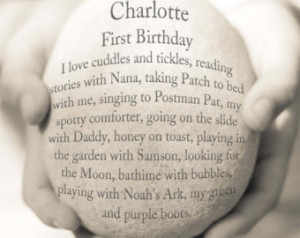 Charlotte
First Birthday
I love cuddles and tickles, reading
stories with Nana, taking Patch to bed
with me, singing to Postman Pat, my
spotty comforter, going on the slide
with Daddy, honey on toast, playing in
the garden with Samson, looking for
the Moon, bathime with bubbles,
playing with Noah's Ark, my green
and purple boots.